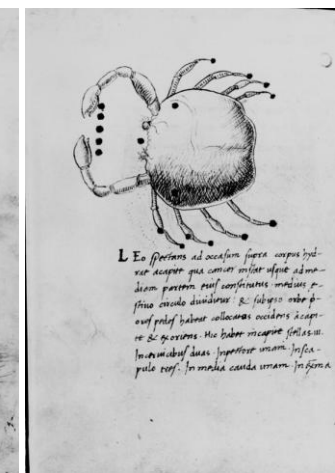 LEo spectans ad occasum supra corpus hyd-
rae acapite qua cancer instat usque adme-
diam partem eius constitutus medius e-
stivo circulo dividitur: & subipso orbe p-
ores pedes habeat collocatos occidens acapi-
te & exoriens. Hic habet incapite stellas .III.
Incervicibus duas. Inpectore unam. Insca-
pulo tres. In media cauda unam. In